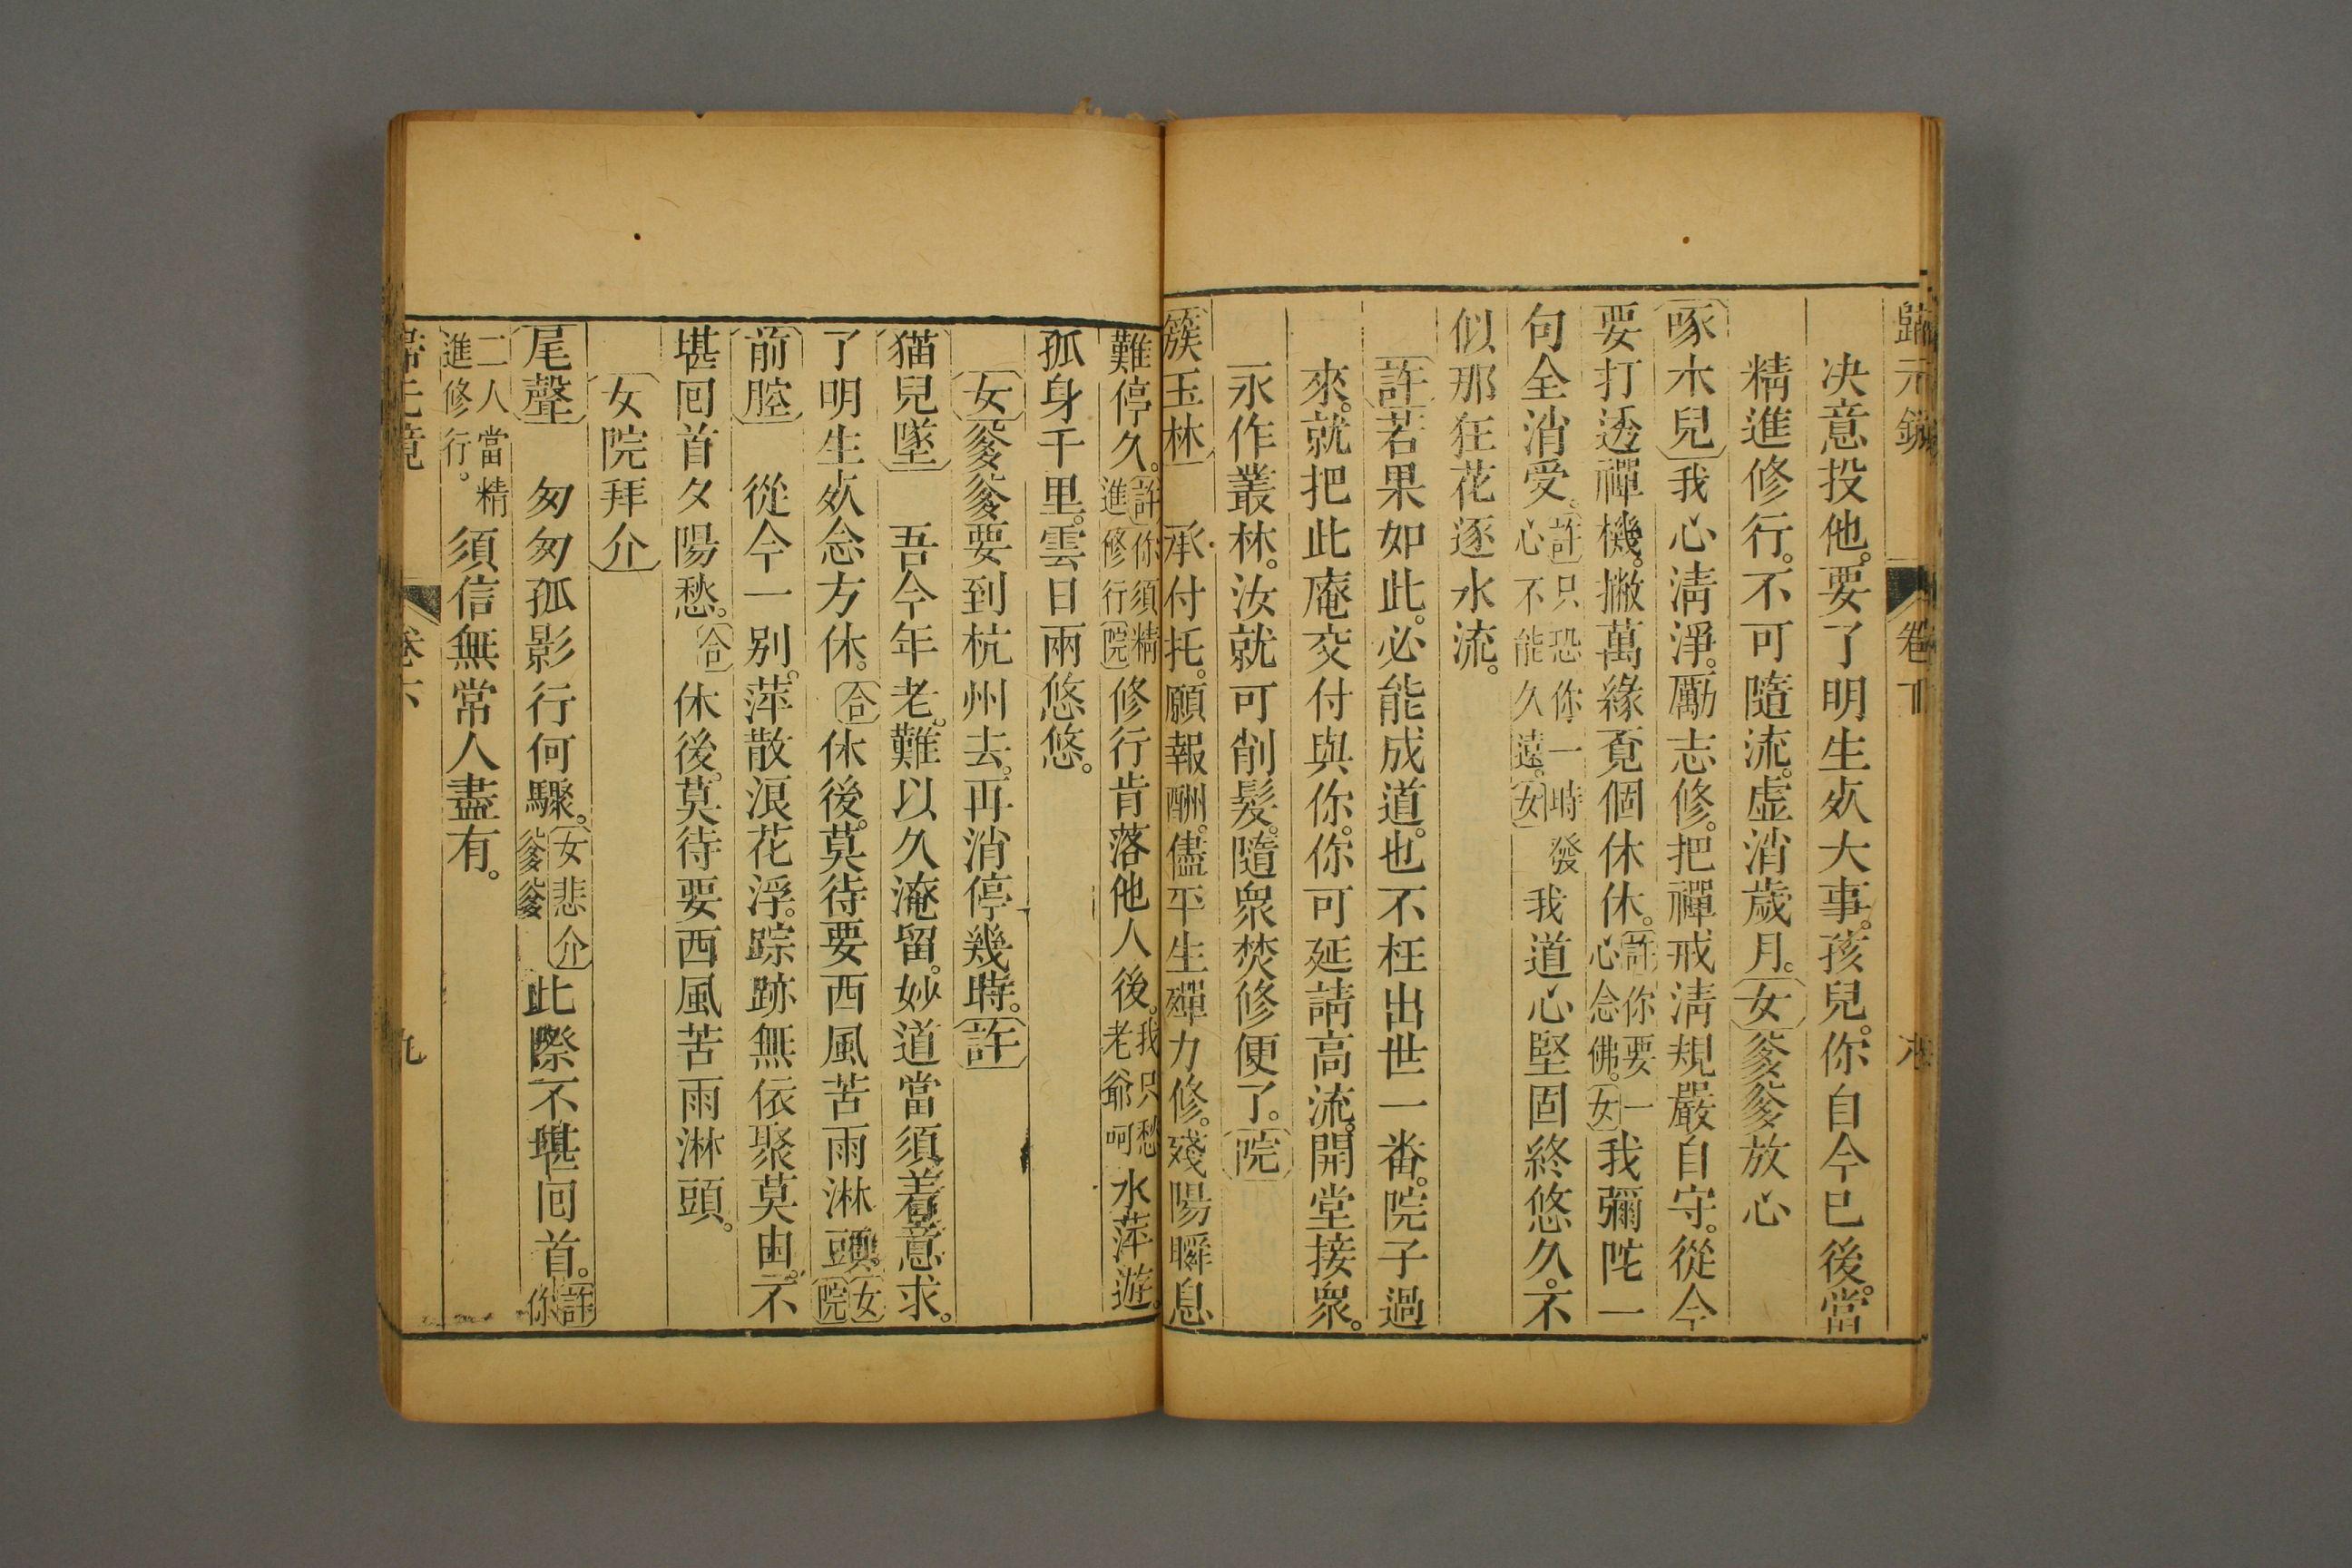 歸元鏡 卷下
决意投他。要了明生㱔大事。孩兒。你自今已後。當
精進修行。不可隨流。虛消歲月。女爹爹放心
啄木兒我心淸淨。勵志修。把禪戒淸規嚴自守。從今
要打透禪機。撇萬緣覔個休休。許你要一心念佛。女我彌陀一
句全消受。許只恐你一時發心不能久遠。女我道心堅固終悠久。不
似那狂花逐水流。
許若果如此。必能成道。也不枉出世一番。院子過
來。就把此庵交付與你。你可延請高流。開堂接衆。
永作叢林。汝就可削髮。隨衆焚修便了。院
簇玉林 承付托。願報酬。儘平生殫力修。殘陽瞬息
難停久。許你須精進修行院修行肯落他人後。我只愁老爺呵水萍遊。
孤身千里。雲日兩悠悠。
女爹爹要到杭州去。再消停幾時。許
猫兒墜 吾今年老。難以久淹留。妙道當須着意求。
了明生㱔念方休。合休後。莫待要西風苦雨淋頭。女院
前腔 從今一别。萍散浪花浮。踪跡無依聚莫由。不
堪囘首夕陽愁。合休後。莫待要西風苦雨淋頭。
女院拜介
尾聲 匆匆孤影行何驟。女悲介爹爹此際不堪囘首。許你
二人當精進修行。須信無常人盡有。
九